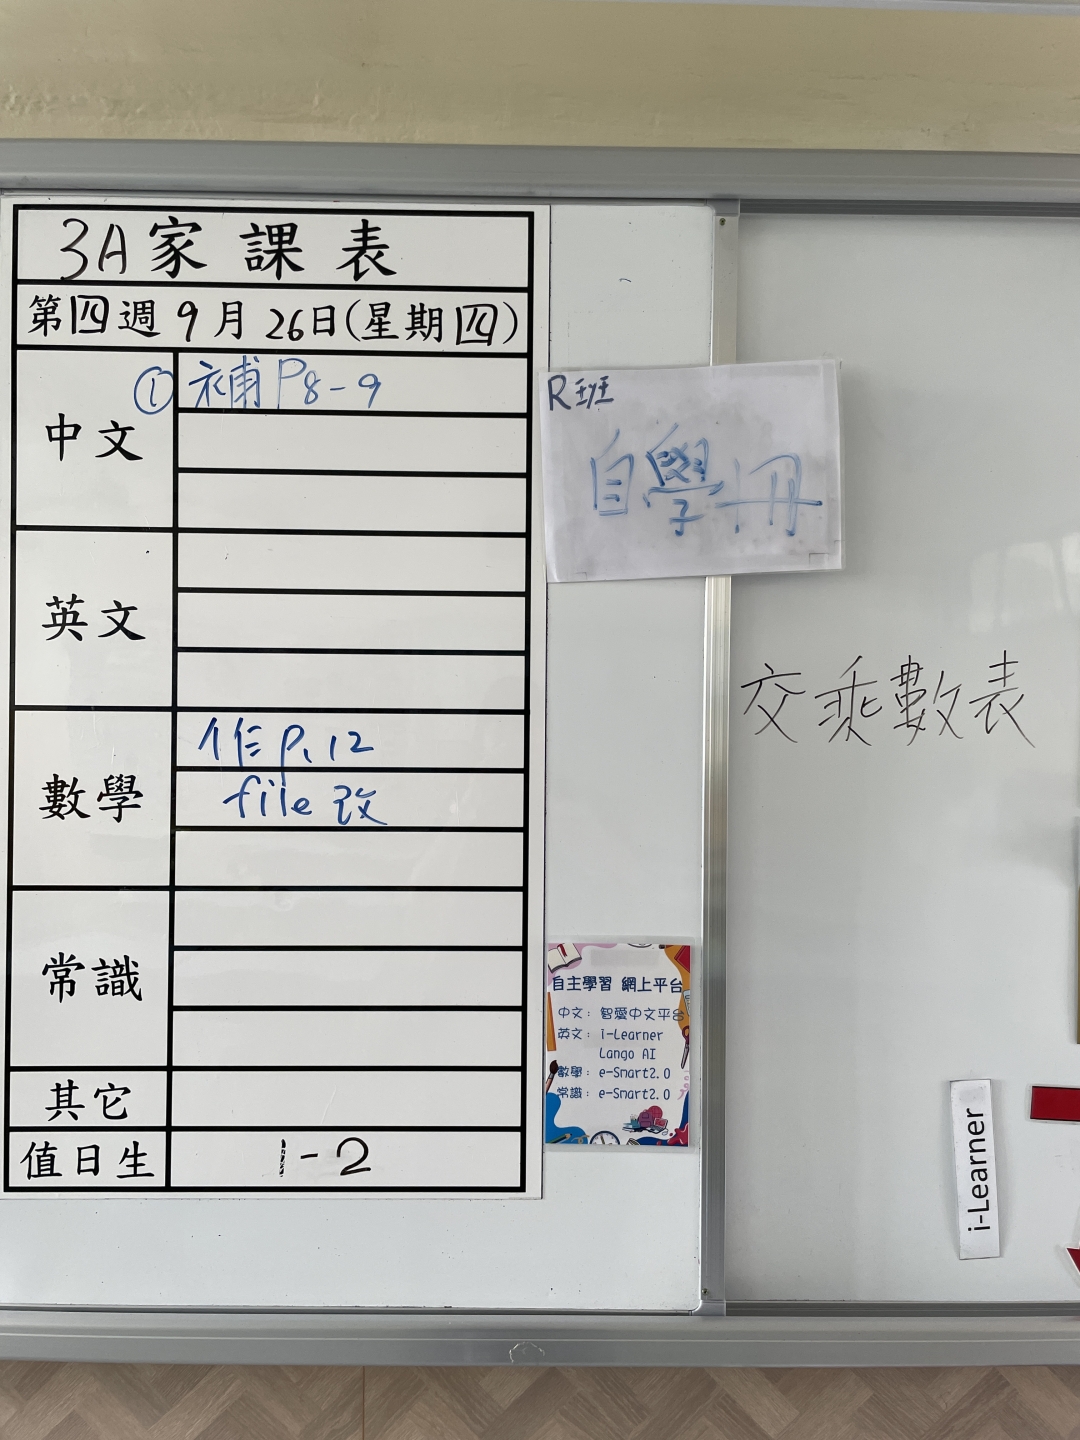 3A家課表
第四週 9月 26日(星期四)
中文
① 補P8-9
英文
數學
作p.12
file改
常識
其它
值日生
1-2
R班
自學冊
交乘數表
自主學習 網上平台
中文：智愛中文平台
英文：i-Learner
Lango AI
數學：e-Smart2.0
常識：e-Smart2.0
i-Learner